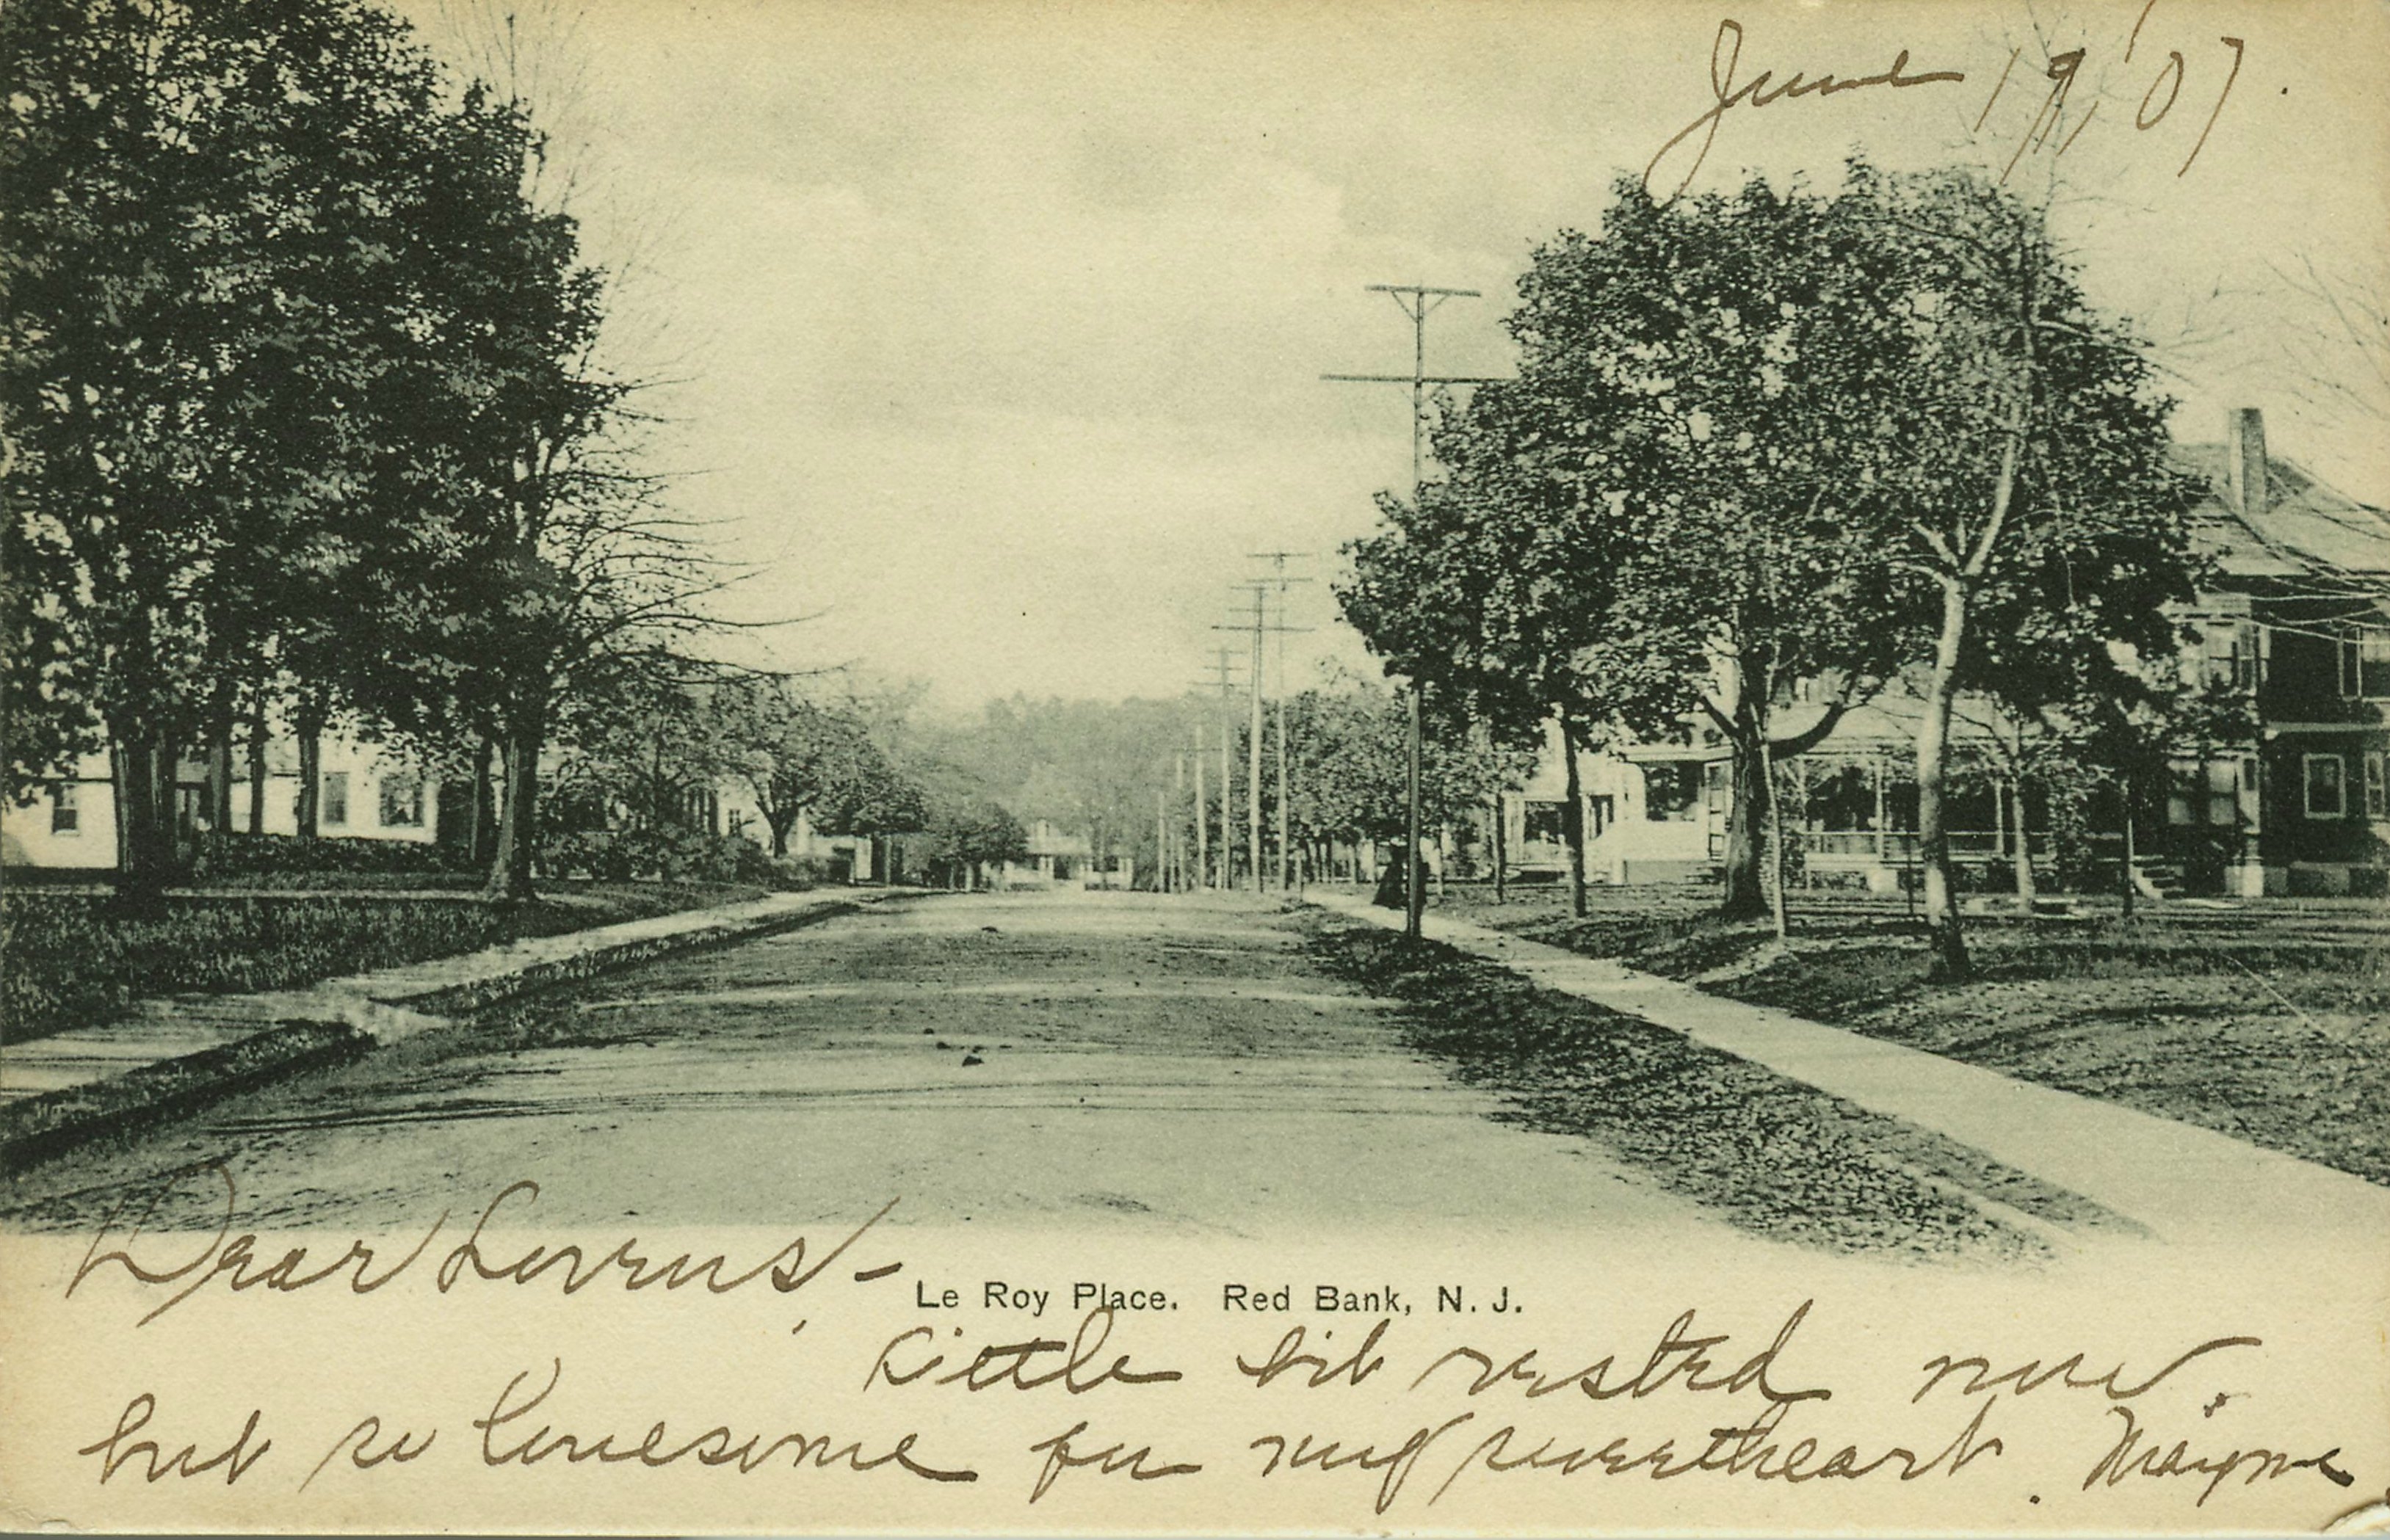 June 19, '07.
Dear
Le Roy Place. Red Bank, N. J.
Little bit rested now.
but so lonesome for my sweetheart. Mayme